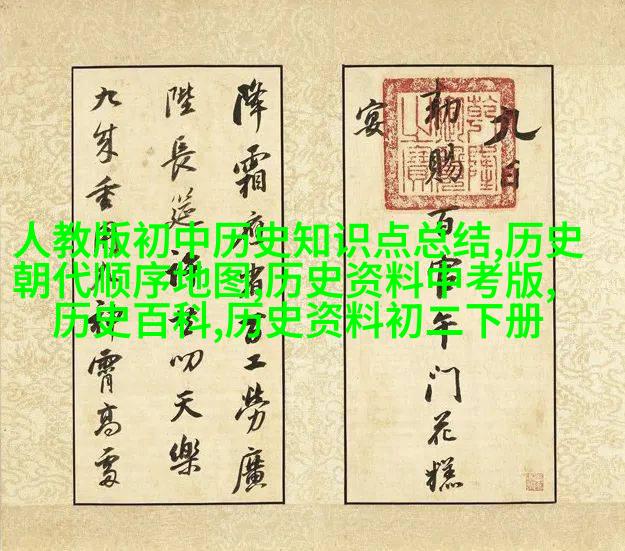 人教版初中历史知识点总结,历史
朝代顺序地图,历史资料中考版,
历史百科,历史资料初二下册
九日
勅賜百官午門花糕
宴
降霜百工勞廣
陛長筵叨天樂
九成重霄高